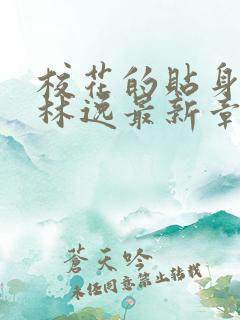 校花的贴身
林逸最新章
蒼天吟
未经同意禁止转载